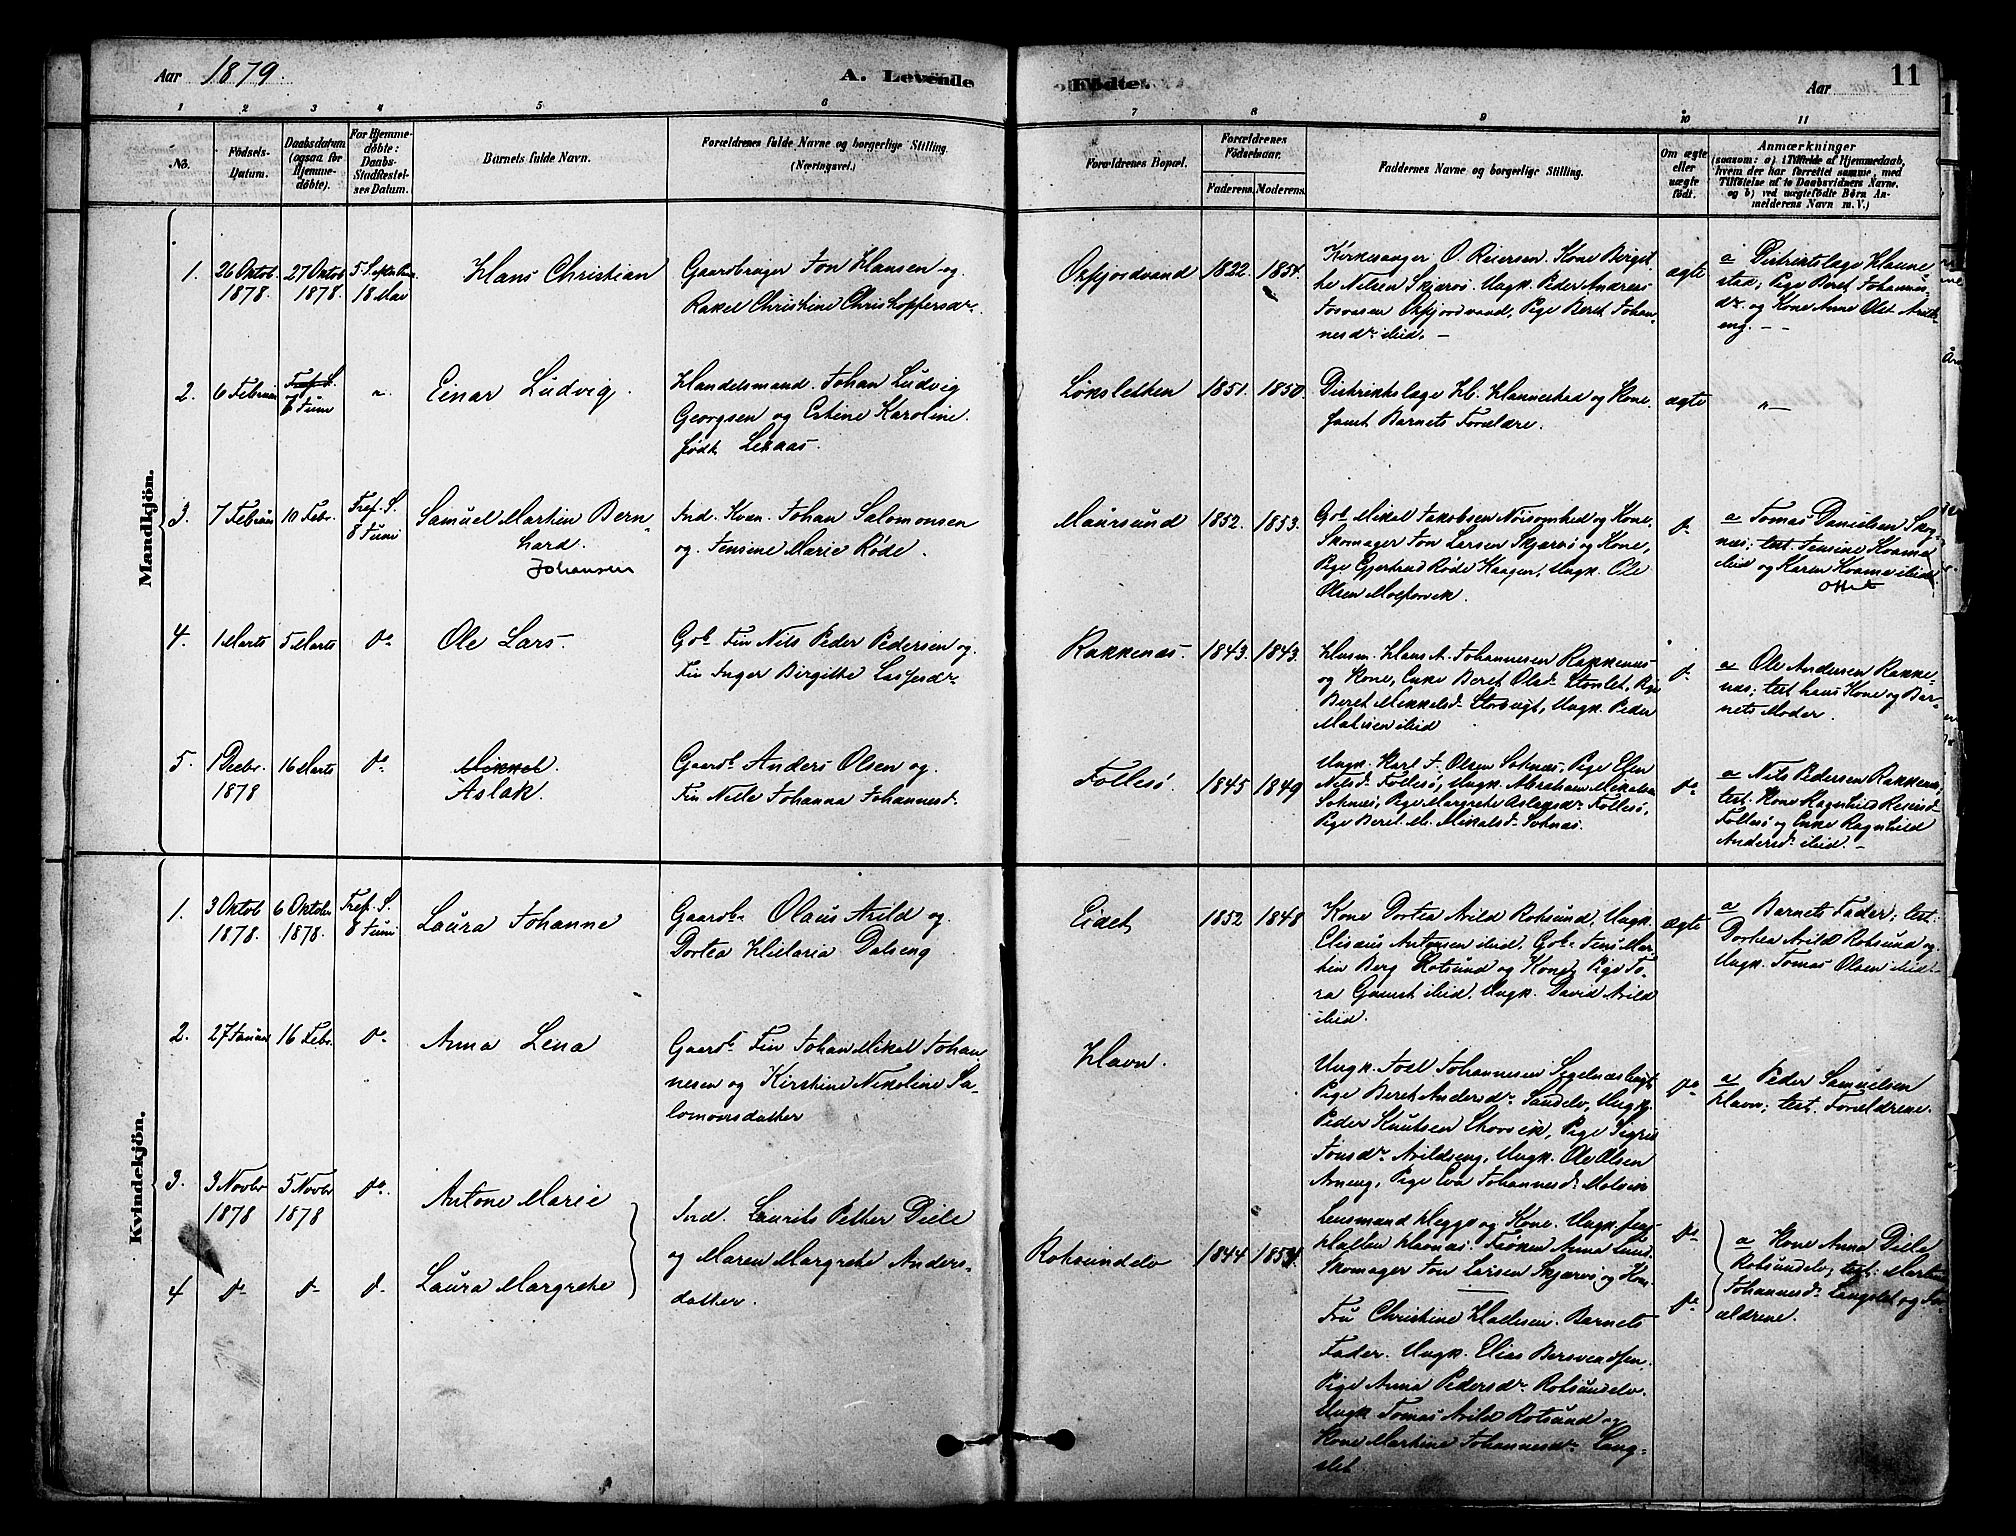 Aar 1879.
A. Levende
Fødte.
Aar
11
1 2 3 4 5 6 7 8 9 10 11
No.
Fødsels-
Datum.
Daabsdatum
(ogsaa for
Hjemme-
døbte).
For Hjemme-
døbte:
Daabs-
Stadfæstel-
ses Datum.
Barnets fulde Navn.
Forældrenes fulde Navne og borgerlige Stilling.
(Næringsvei.)
Forældrenes Bopæl.
Forældrenes
Fødselsaar.
Faderens. Moderens.
Faddernes Navne og borgerlige Stilling.
Om ægte
eller
uægte
født.
Anmærkninger
(saasom: a) i Tilfælde af Hjemmedaab,
hvem der har forrettet samme, med
Tilføielse af to Daabsvidners Navne.
og b) ved uægtefødte Børn An-
melderens Navn m. V.)
Mandkjön.
1.
26 Oktob
1878.
27 Oktob
1878.
18 Mai
Hans Christian
Gaardbruger Jon Hansen og
Rakel Christine Christoffersdr.
Oxfjordvand
1822.
1854.
Kirkesanger O. Reiersen. Kone Birgit-
he Nilsen Skjærvø. Ungk. Peder Andreas
Oxfjordvand, Pige Beret Johan-
nesdr. ibid. —
ægte
a Distriktslæge Hanne-
stad; Pige Beret Johannes-
dr. og Kone Anne
eng. — —
2.
6 Februar
6 Juni
Einar Ludvig.
Handelsmand Johan Ludvig
Georgsen og Estine Karoline
født
Løkslethen
1851.
1850.
Distriktslæge H. Hannestad og Kone
samt Barnets Forældre.
ægte
3.
7 Februar
10 Febr.
Tref. S.
8 Juni
Samuel Martin Bern-
hard.
Johansen
Ind. Kvæn. Johan Salomonsen
og Jensine Marie Røde.
Maursund
1852.
1853.
Gb. Mikal Jakobsen Noisomhed og Kone,
Skomager Jon Larsen Skjærvø og Kone,
Pige Gjertrud Røde Haagen, Ungk. Ole
Olsen
do
a Tomas Danielsen Skog-
næs; test. Jensine
ibid og Karen ibid
4.
1 Marts
5 Marts
do
Ole Lars.
Gb. Fin Nils Peder Pedersen og
Fin Inger Birgithe
Rakkenæs.
1843.
1843.
Husm. Hans A. Johannesen Rakkenæs
og Kone, Enke Beret Olsd. Storslet, Pige
Beret Mikkelsd. Storbugt, Ungk. Peder
ibid
do
a Ole Andersen Rakke-
næs; test hans Kone og Bar-
nets Moder.
5.
1 Decbr.
1878
16 Marts
do
Mikkel
Aslak.
Gaardb. Anders Olsen og
Fin Nille Johanna Johannesd.
Follesø.
1845
1849
Ungk. Karl J. Olsen Sotnæs, Pige
Nilsd. Follesø, Ungk. Abraham Mikalsen
Sotnæs, Pige Margrethe Aslaksdr. Follesø,
Pige Beret M. Mikalsd. Sotnæs.
do
a Nils Pedersen Rakkenæs,
test. Kone Ragnhild
Follesø og Enke Ragnhild
Andersd. ibid. —
Kvindekjön.
1.
3 Oktob
1878.
6 Oktobr
1878.
Tref. S.
8 Juni
Laura Johanne
Gaardb. Olaus Arild og
Dortea Hilaria Dalseng
Eidet
1852
1848
Kone Dortea Arild Rotsund, Ungk.
Elisæus Antonsen ibid. Gb. Jens Mar-
tin Berg Rotsund og Kone, Pige To-
ra ibid. Ungk. David Arild
ibid.
ægte
a Barnets Fader; test:
Dortea Arild Rotsund og
Ungk. Tomas Olsen ibid
2.
27 Januar
16 Febr.
do
Anna Lena
Gaardb. Fin Johan Mikal Johan
nesen og Kirstine Nikoline Sa-
lomonsdatter
Havn.
Ungk. Joel Johannesen
Pige Beret Andersdr. Sandelv, Ungk.
Peder Knutsen Storvik, Pige Sigrid
Jonsdr. Arildseng, Ungk. Ole Olsen
Arneng, Pige Eva Johannesd.
do
a Peder Samuelsen
Havn; test. Forældrene.
3.
3 Novbr
1878
5 Novbr
1878
do
Antone Marie
Ind. Laurits Petter Diele
og Maren Margrethe Anders-
datter.
Rotsundelv
1844
1854.
Lensmand Hegge og Kone. Ungk.
Havnæs. Frøken Anna Lund
Skomager Jon Larsen Skjærvø og Kone
do
a Kone Anna Diele
Rotsundelv; test: Martine
Johannesd. Langslet og For-
ældrene.
4
do
do
do
Laura Margrethe
Fru Christine Barnets
Fader. Ungk. Elias Bersvendsen.
Pige Anna Pedersdr. Rotsundelv.
Ungk Tomas Arild Rotsund og
Kone Martine Johannesdr. Lang-
slet.
do